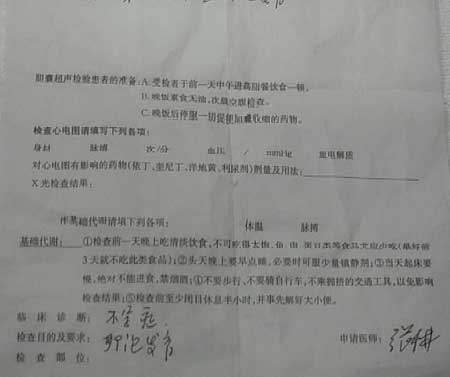 胆囊超声检验患者的准备:A.受检者于前一天中午进高脂餐饮食一顿,
B.晚饭素食无油,次晨空腹检查。
C.晚饭后停服一切促使加囊收缩的药物。
检查心电图请填写下列各项:
身材 脉搏 次/分 血压 / mmHg 血电解质
对心电图有影响的药物(依丁、奎尼丁、洋地黄、利尿剂)剂量及用法:
X光检查结果:
作基础代谢请填下列各项: 体温 脉搏
基础代谢: ①检查前一天晚上吃清淡饮食,不可吃得太饱,鱼 肉 蛋白类等食品尤应少吃(最好前
3天就不吃此类食品);②头天晚上要早点睡,必要时可服少量镇静剂;③当天起床要
慢,绝对不能进食,禁烟酒;④不要步行、不要骑自行车,不乘拥挤的交通工具,以免影响
检查结果;⑤检查前至少闭目休息半小时,并事先解好大小便。
临床诊断:
检查目的及要求: 发育
检查部位:
申请医师: 张